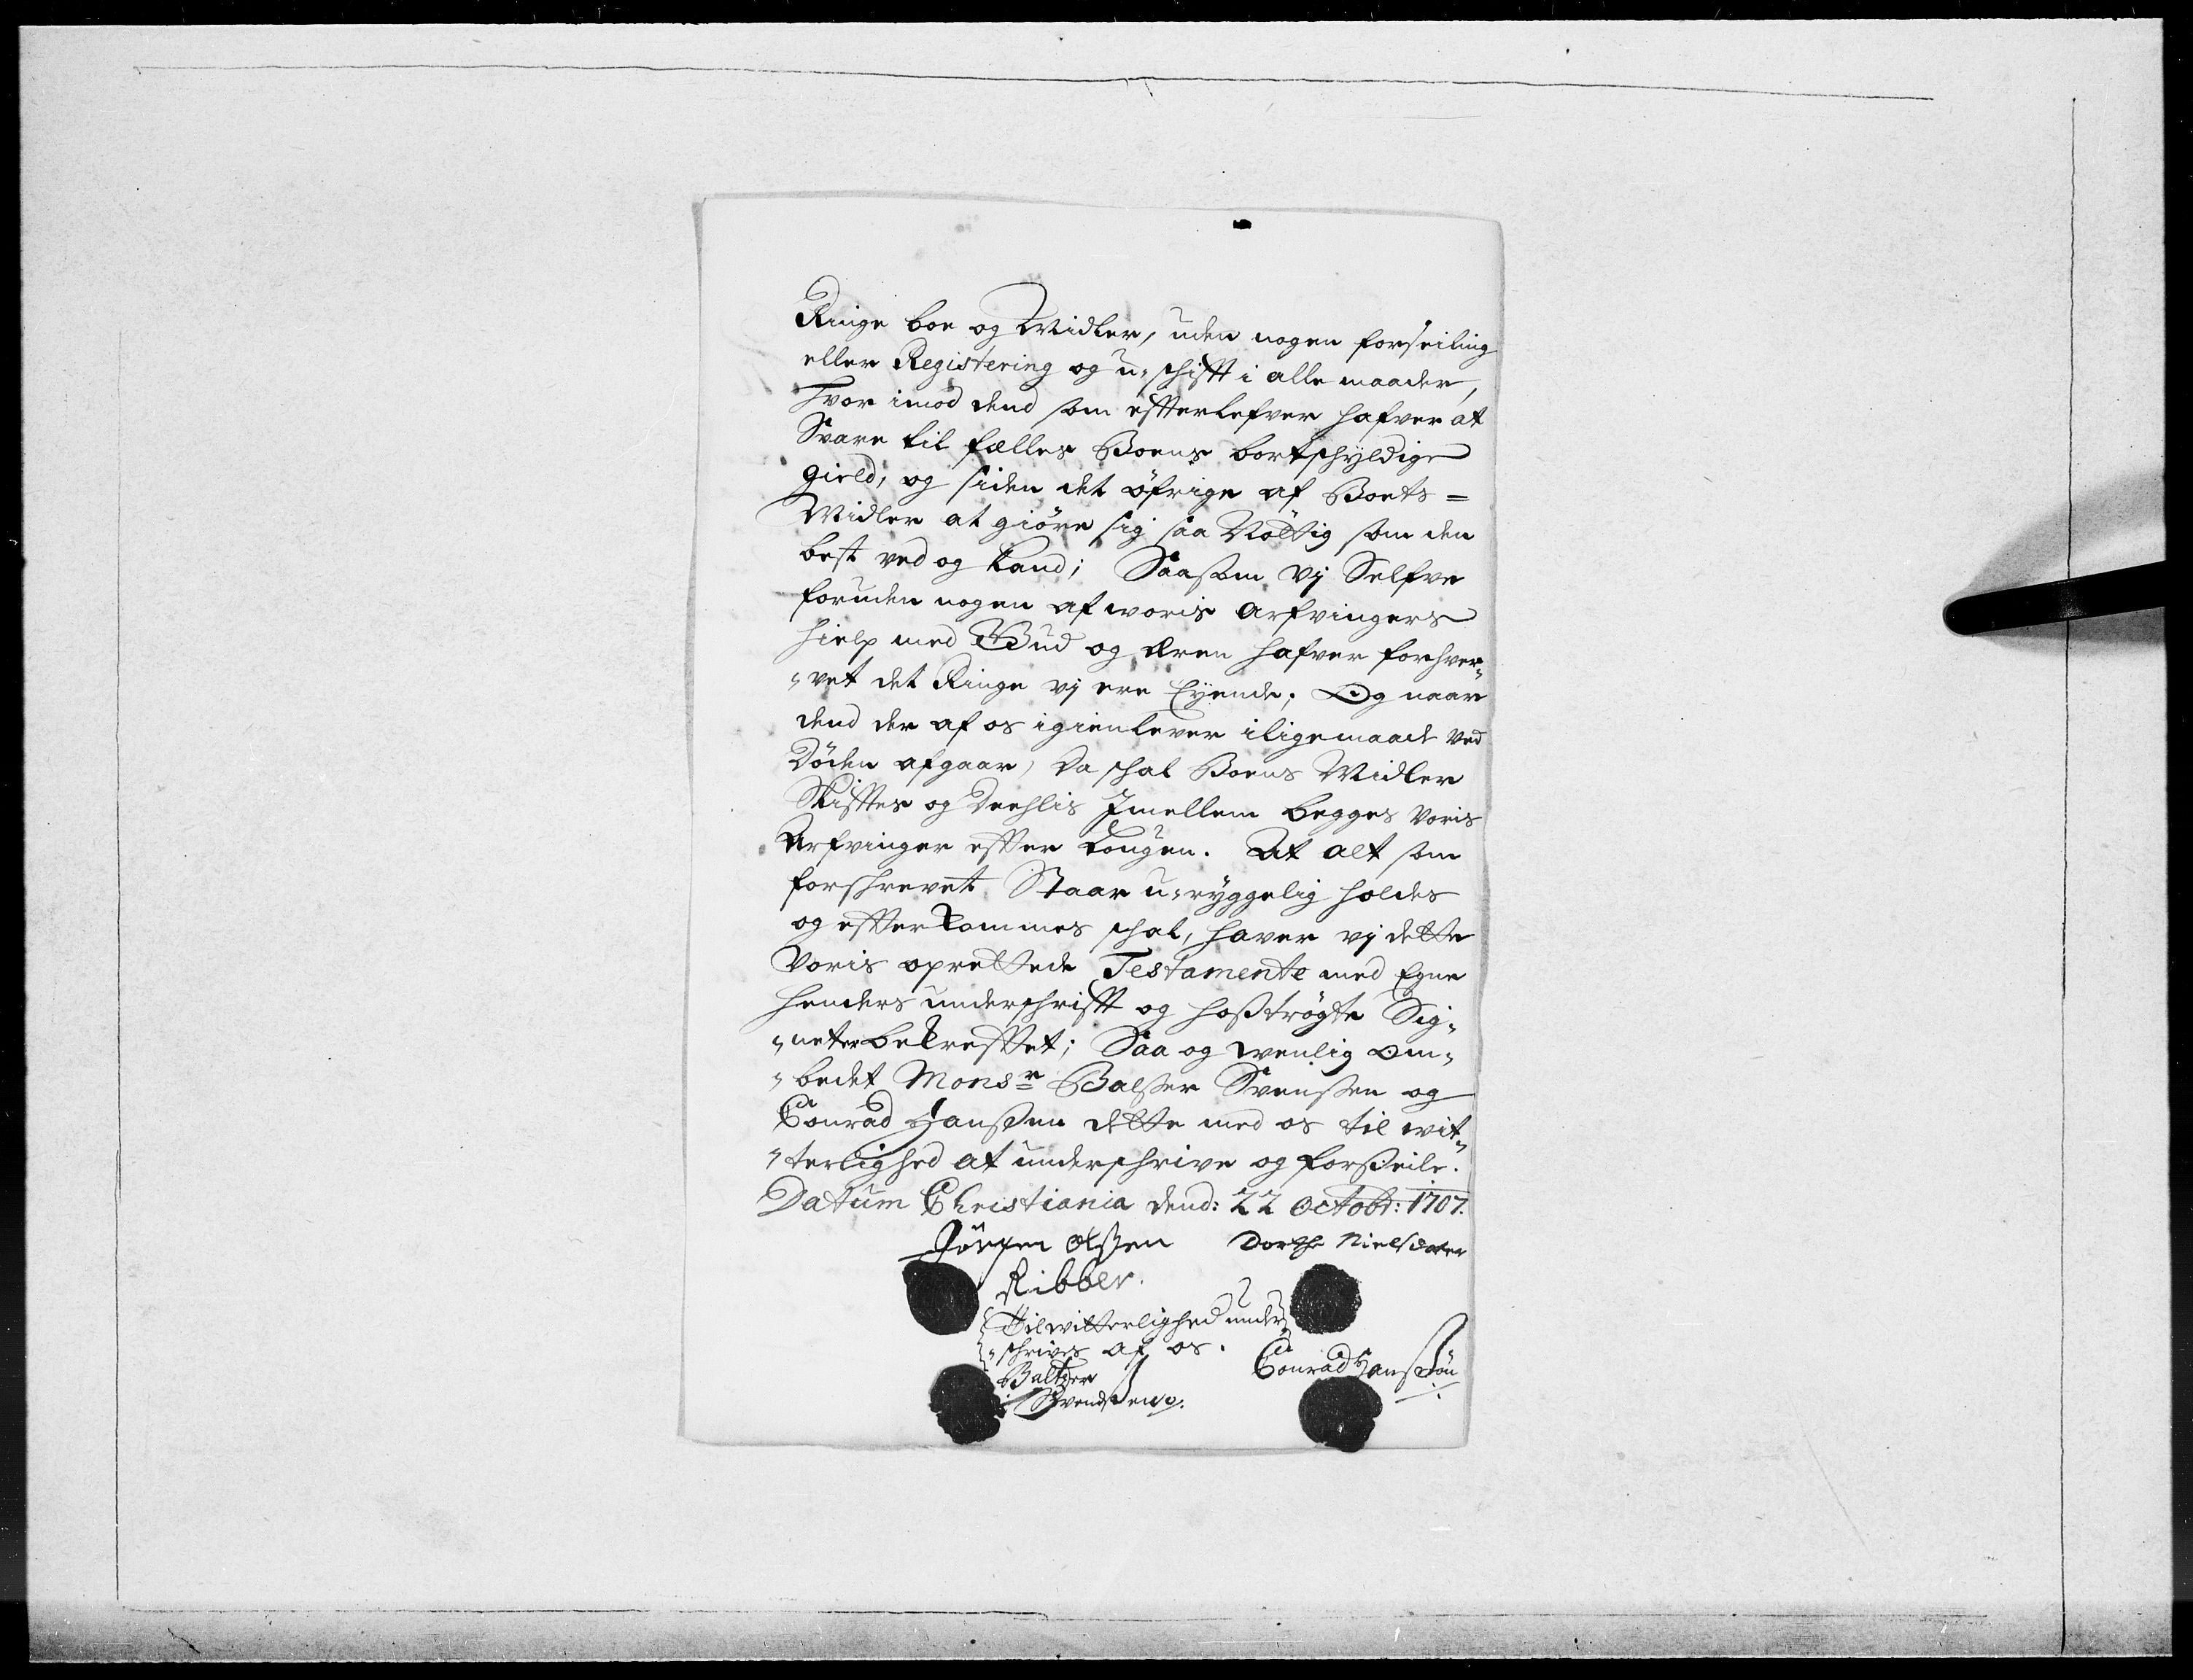 Ringe boe og Midler, uden nogen forseiling
eller Registering og u-schifft i alle maader,
hvor imod dend som effterlefver hafver at
Svare til fælles Boens bortschyldige
gield, og siden det öfrige af Boets=
Midler at giöre sig saa Nöttig som den
best ved og kand; Saasom vj Selfve
foruden nogen af woris arfvingers
hielp med Gud og æren hafver forhver„
„vet det Ringe vj ere Eyende; Og naar
dend der af os igienlever iligemaade ved
Döden afgaar, da schal Boens Midler
Skifftes og Deehlis Jmellem begges Voris
Arfvinger effter Lougen. At alt som
forschrevet Staar u-ryggelig holdes
og effterkommes schal, haver vj dette
Voris oprettede Testamente med Egne
henders underschrifft og hoßtrögte Sig„
„neter bekrefftet; Saa og wenlig om„
„bedet Monsr Balßer Svenßen og
Conrad Hanßen dette med os til wit„
„terlighed at underschrive og forseile.
Datum Christiania dend: 22 Octobr: 1707.
Jörgen Olßen Dorthe Nielsdater
Ribber.
Til witterlighed under„
„schrives af os.
Baltzer Conrad Hanßön
Svendßen